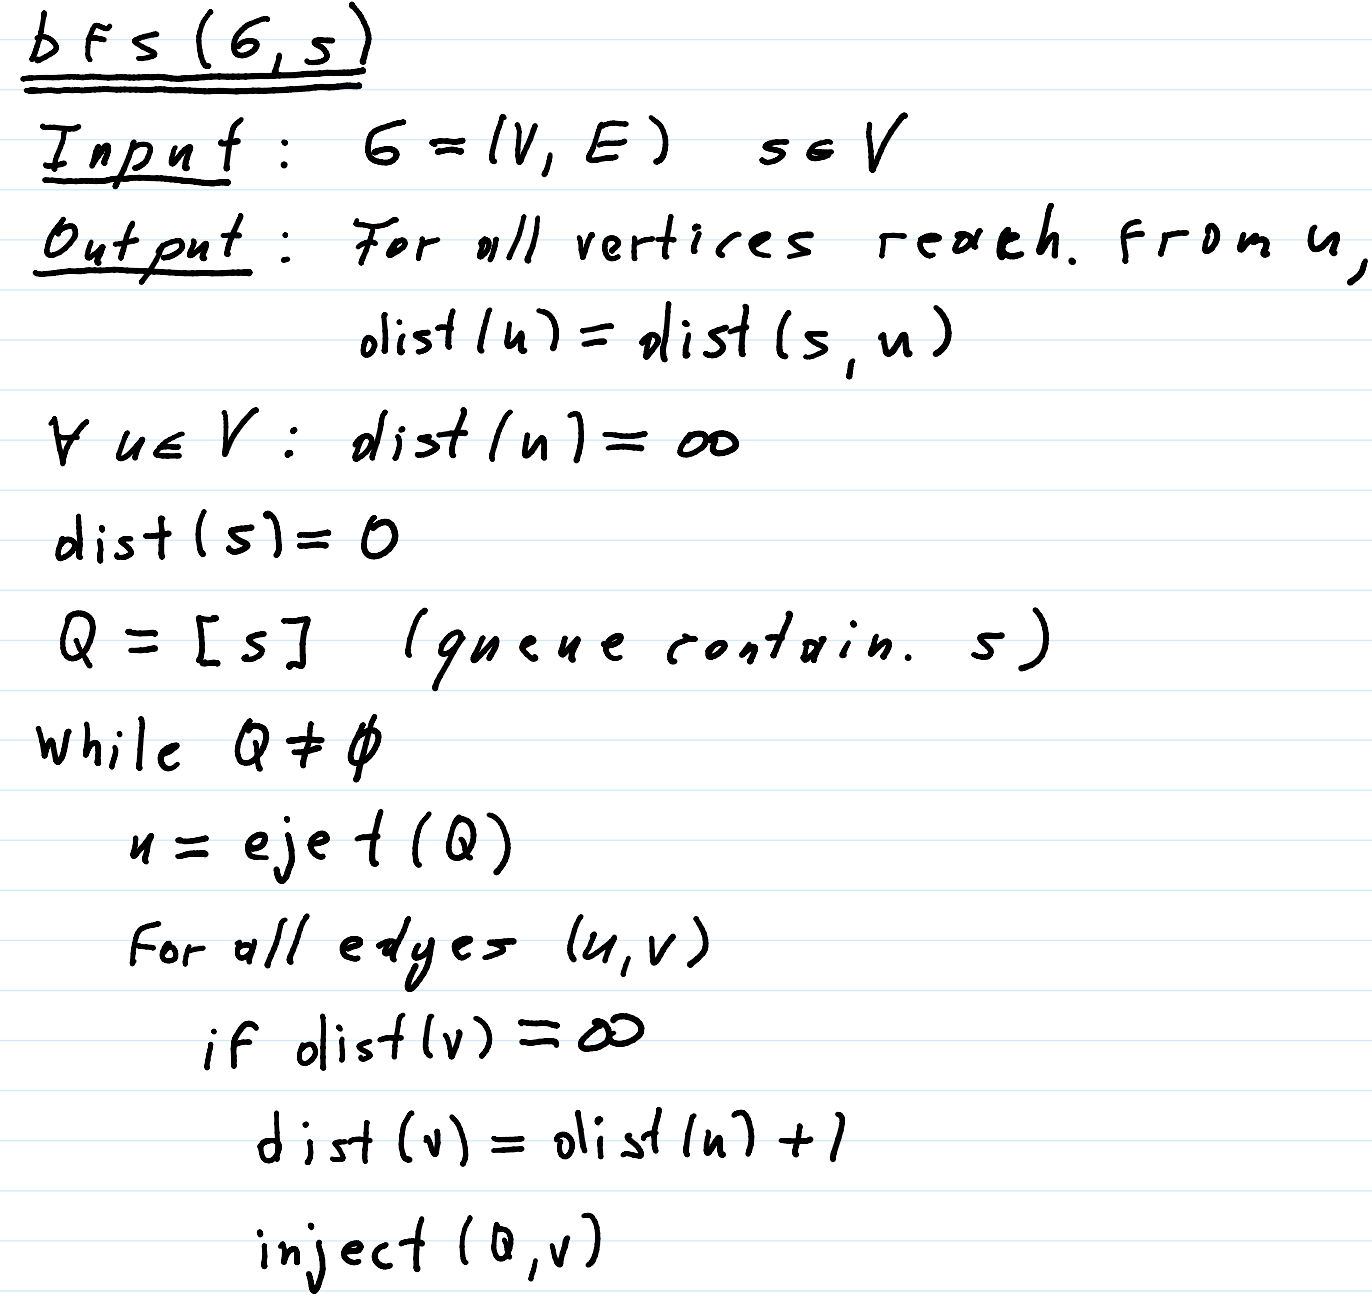 bfs(G,s)
Input: G=(V,E) s∈V
Output: For all vertices reach. from u,
dist(u)=dist(s,u)
∀ u∈V: dist(u)=∞
dist(s)=0
Q=[s] (queue contain. s)
While Q≠∅
u=ejet(Q)
For all edges (u,v)
if dist(v)=∞
dist(v)=dist(u)+1
inject(Q,v)